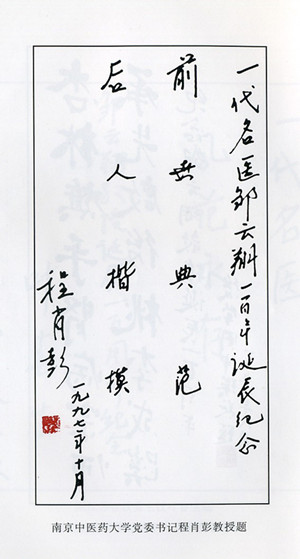 一代名医邹云翔一百年诞辰纪念
前世典范
后人楷模
程肖彭
一九九七年十月
南京中医药大学党委书记程肖彭教授题